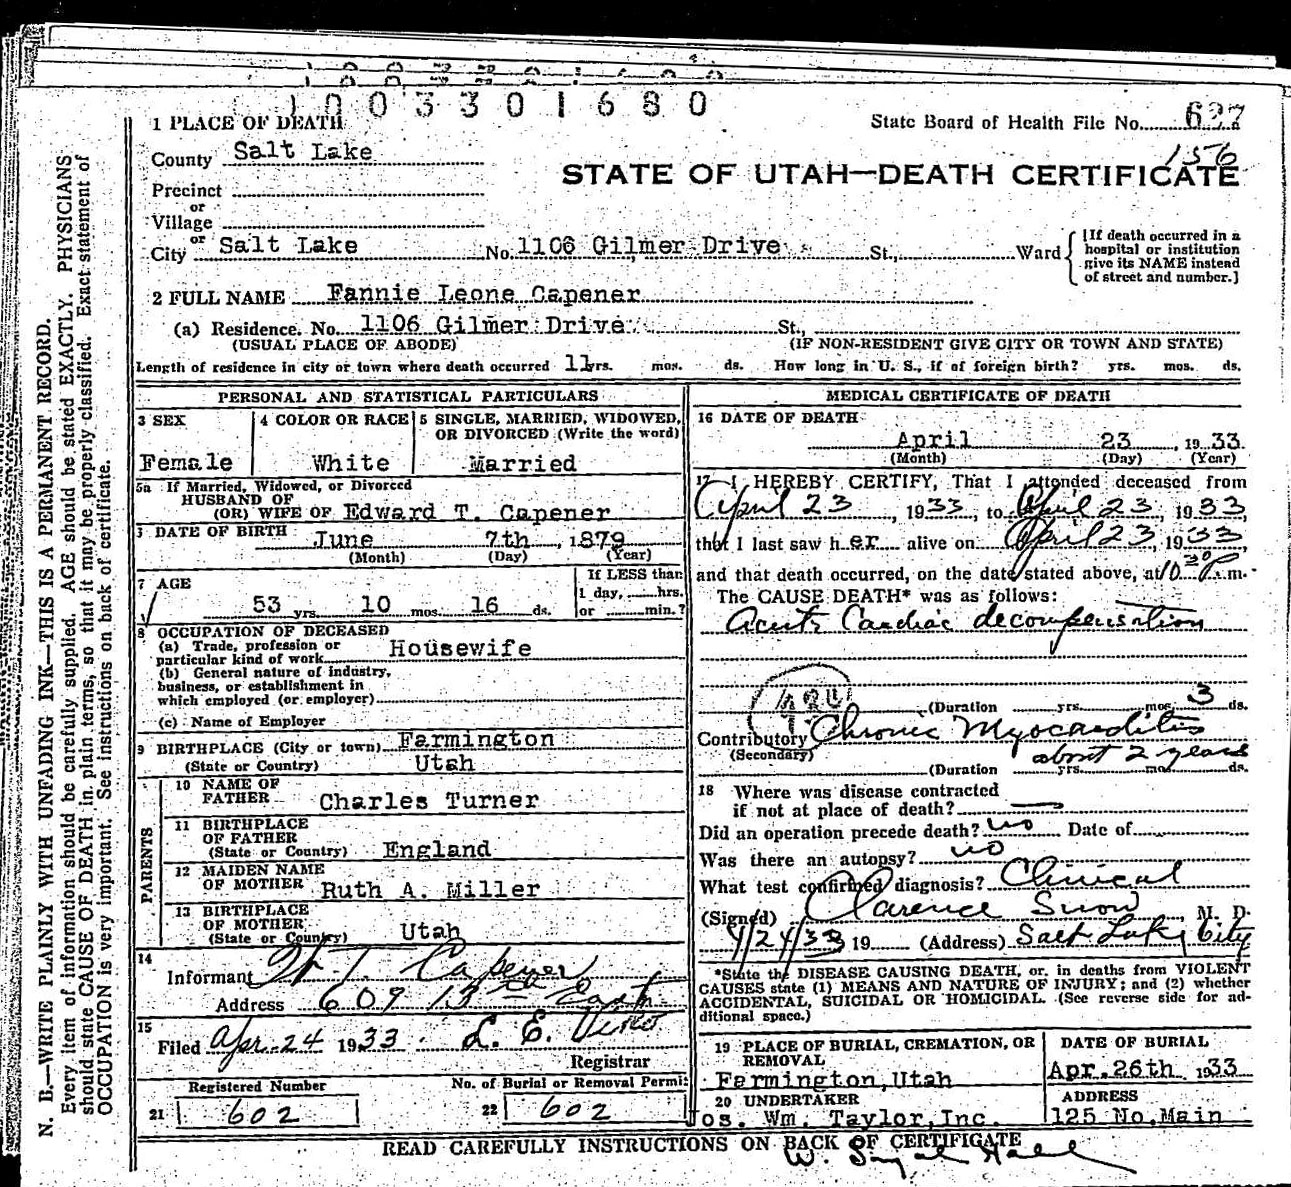 1003301680
1 PLACE OF DEATH
State Board of Health File No. 627
156
County Salt Lake
STATE OF UTAH—DEATH CERTIFICATE
Precinct
or
Village
or
City Salt Lake No. 1106 Gilmer Drive St., Ward
[If death occurred in a hospital or institution give its NAME instead of street and number.]
2 FULL NAME Fannie Leone Capener
(a) Residence. No. 1106 Gilmer Drive St.,
(USUAL PLACE OF ABODE) (IF NON-RESIDENT GIVE CITY OR TOWN AND STATE)
Length of residence in city or town where death occurred 11 yrs. mos. ds. How long in U. S., if of foreign birth? yrs. mos. ds.
PERSONAL AND STATISTICAL PARTICULARS
3 SEX
Female
4 COLOR OR RACE
White
5 SINGLE, MARRIED, WIDOWED,
OR DIVORCED (Write the word)
Married
5a If Married, Widowed, or Divorced
HUSBAND OF
(OR) WIFE OF Edward T. Capener
DATE OF BIRTH June 7th, 1879
(Month) (Day) (Year)
7 AGE
53 yrs. 10 mos. 16 ds.
If LESS than
1 day, hrs.
or min.?
8 OCCUPATION OF DECEASED
(a) Trade, profession or
particular kind of work Housewife
(b) General nature of industry,
business, or establishment in
which employed (or employer)
(c) Name of Employer
9 BIRTHPLACE (City or town) Farmington
(State or Country) Utah
PARENTS
10 NAME OF
FATHER Charles Turner
11 BIRTHPLACE
OF FATHER
(State or Country) England
12 MAIDEN NAME
OF MOTHER Ruth A. Miller
13 BIRTHPLACE
OF MOTHER
(State or Country) Utah
14
Informant T. Capener
Address 609 13th East
15
Filed Apr. 24 1933 L. E. Viko
Registrar
Registered Number
21 602
No. of Burial or Removal Permit
22 602
MEDICAL CERTIFICATE OF DEATH
16 DATE OF DEATH
April 23, 1933
(Month) (Day) (Year)
17 I HEREBY CERTIFY, That I attended deceased from
April 23, 1933, to April 23, 1933,
that I last saw her alive on April 23, 1933,
and that death occurred, on the date stated above, at 10:30 P.m.
The CAUSE DEATH* was as follows:
Acute Cardiac decompensation
(Duration yrs. mos. 3 ds.
Contributory Chronic Myocarditis
(Secondary) about 2 years
(Duration yrs. mos. ds.
18 Where was disease contracted
if not at place of death? —
Did an operation precede death? no Date of
Was there an autopsy? no
What test confirmed diagnosis? Clinical
(Signed) Clarence Snow, M. D.
4/24/33 19 (Address) Salt Lake City
*State the DISEASE CAUSING DEATH, or, in deaths from VIOLENT
CAUSES state (1) MEANS AND NATURE OF INJURY; and (2) whether
ACCIDENTAL, SUICIDAL OR HOMICIDAL. (See reverse side for ad-
ditional space.)
19 PLACE OF BURIAL, CREMATION, OR
REMOVAL
Farmington, Utah
DATE OF BURIAL
Apr. 26th 1933
20 UNDERTAKER
os. Wm. Taylor, Inc.
ADDRESS
125 No. Main
READ CAREFULLY INSTRUCTIONS ON BACK OF CERTIFICATE
N. B.—WRITE PLAINLY WITH UNFADING INK—THIS IS A PERMANENT RECORD.
Every item of information should be carefully supplied. AGE should be stated EXACTLY. PHYSICIANS
should state CAUSE OF DEATH in plain terms, so that it may be properly classified. Exact statement of
OCCUPATION is very important. See instructions on back of certificate.